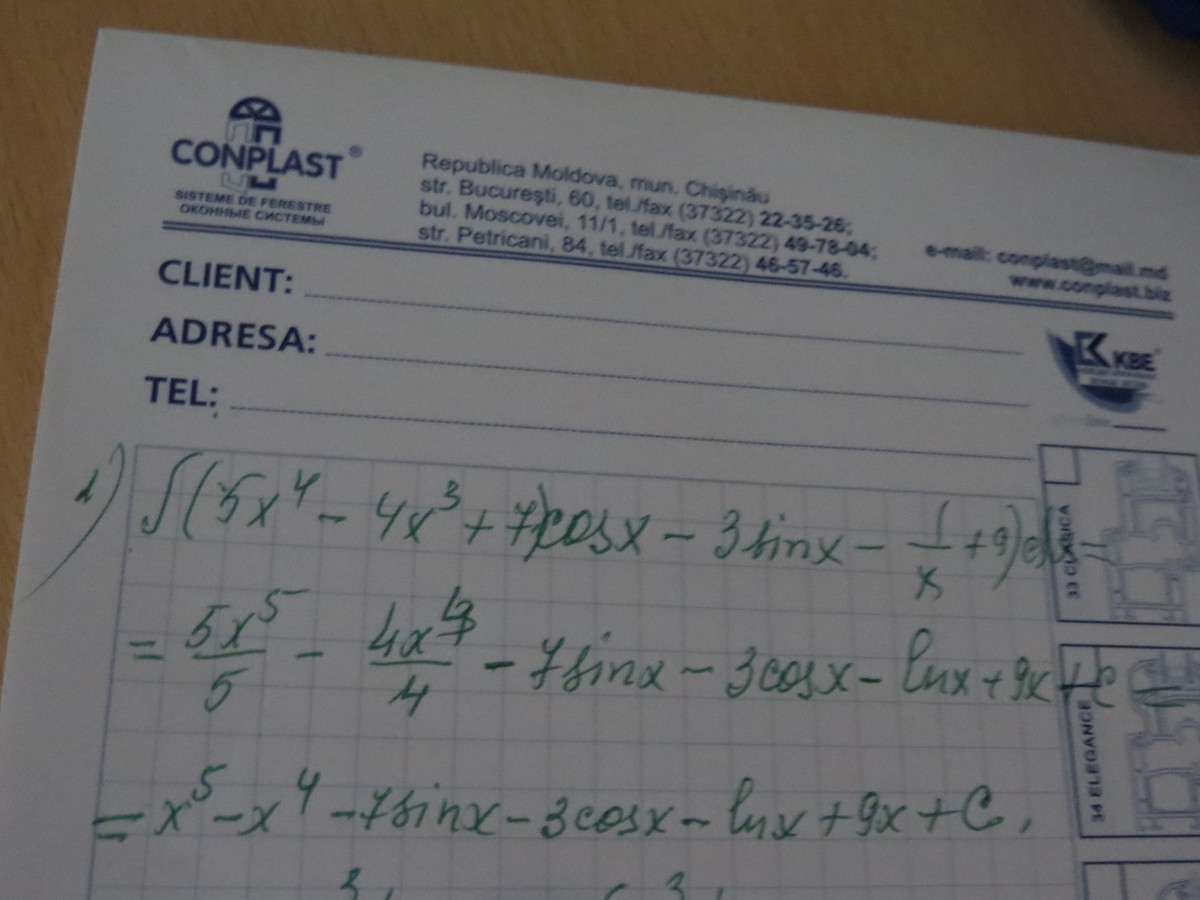 CONPLAST®
SISTEME DE FERESTRE
ОКОННЫЕ СИСТЕМЫ
Republica Moldova, mun. Chişinău
str. Bucureşti, 60, tel./fax (37322) 22-35-26;
bul. Moscovei, 11/1, tel./fax (37322) 49-78-04;
str. Petricani, 84, tel./fax (37322) 46-57-46.
e-mail: conplast@mail.md
www.conplast.biz
CLIENT:
ADRESA:
TEL:
KBE
1) ∫(5x⁴ - 4x³ + 7)cosx - 3sinx - 1/x + 9)dx =
= 5x⁵/5 - 4x⁴/4 - 7sinx - 3cosx - lnx + 9x + C =
= x⁵ - x⁴ - 7sinx - 3cosx - lnx + 9x + C,
33 CLASICA
34 ELEGANCE